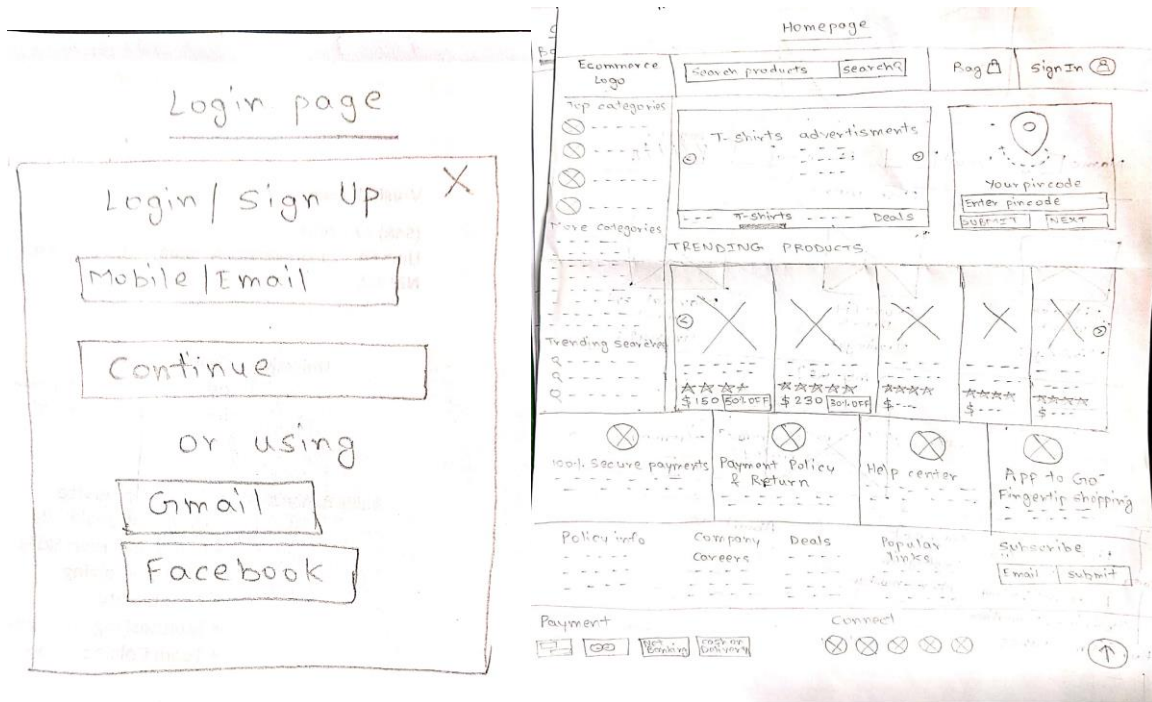 Login page
Login / Sign Up X
Mobile / Email
Continue
or using
Gmail
Facebook
Homepage
Ecommerce
Logo
Search products
search
Bag
Sign In
Top categories
More categories
Trending searches
T-shirts advertisments
T-shirts
Deals
Your pincode
Enter pincode
SUBMIT
NEXT
TRENDING PRODUCTS
$150 50% OFF
$230 30% OFF
$---
$---
$---
100% Secure payments
Payment Policy
& Return
Help center
App to Go
Fingertip shopping
Policy info
Company
Careers
Deals
Popular
links
Subscribe
Email
submit
Payment
Net
Banking
cash on
Delivery
Connect